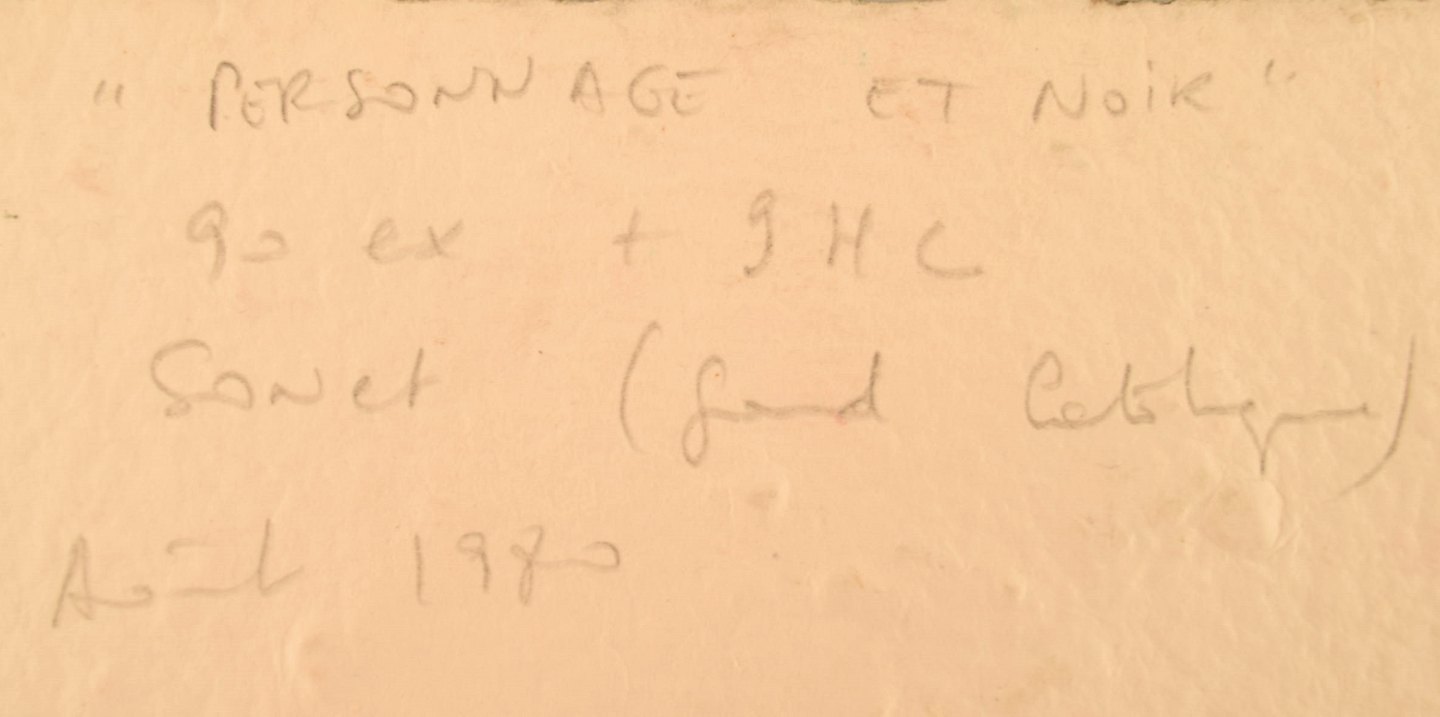 "PERSONNAGE ET NOiR"
90 ex + 9 HC
SONET (Grand Catalogue)
Août 1980